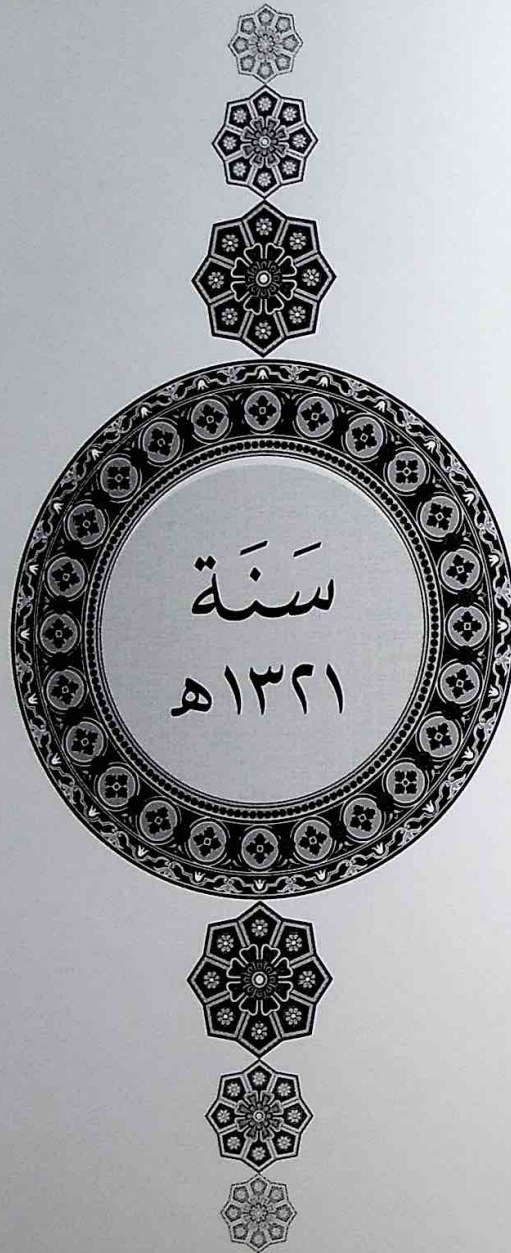 سَنَة
١٣٢١ه